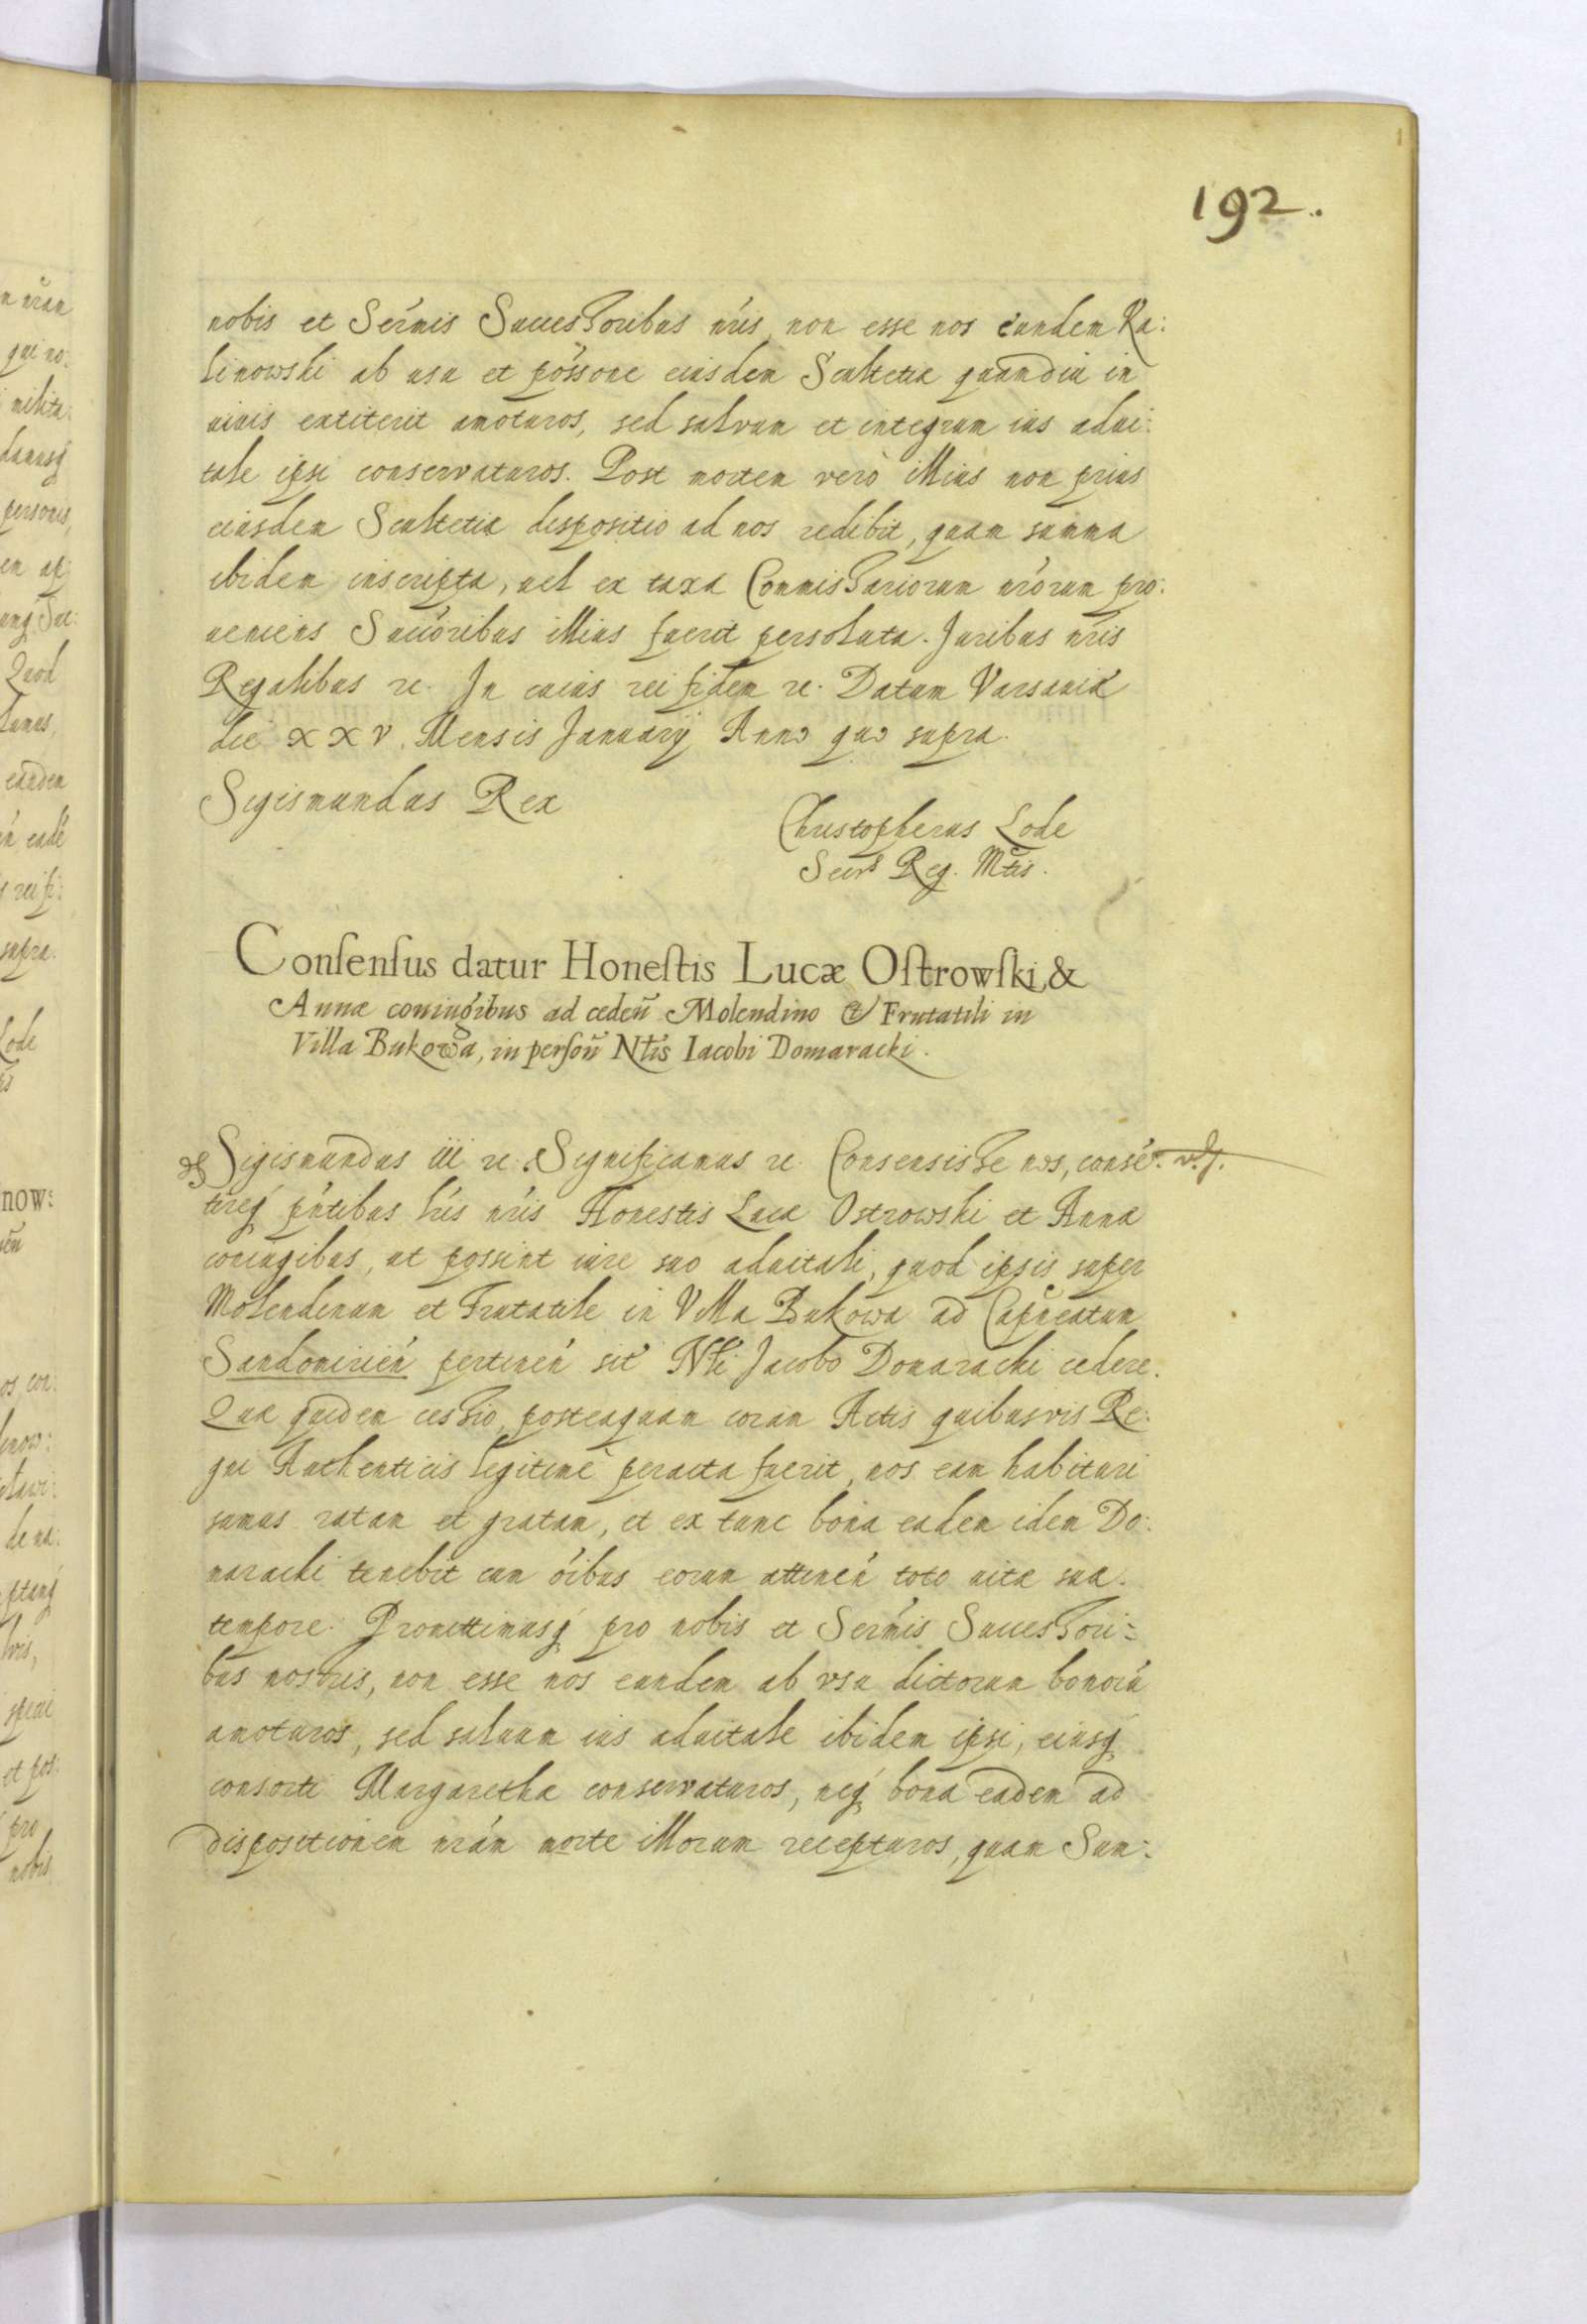 192.
nobis et Sermis Successoribus nris, non esse nos eundem Ka:
linowski ab usu et possone eiusdem Scultetiæ quamdiu in
uiuis extiterit amoturos, sed salvum et integrum ius adui:
tale ipsi conservaturos. Post mortem verò illius non prius
eiusdem Scultetiæ dispositio ad nos redibit, quam summa
ibidem inscripta, uel ex taxa Commissariorum nrorum pro:
ueniens Succoribus illius fuerit persoluta. Juribus nris
Regalibus etc. In cuius rei fidem etc. Datum Varsauiæ
die XXV. Mensis January Anno quo supra.
Sigismundus Rex
Christopherus Lode
Secrs Reg. Mtis.
Consensus datur Honestis Lucæ Ostrowski, &
Annæ coniugibus ad ceden̄ Molendino & Frutatili in
Villa Bukowa, in person̄ Ntis Iacobi Domaracki.
Sigismundus iii etc. Significamus etc. Consensisse nos, conse:
tireq pntibus lris nris Honestis Lucæ Ostrowski et Annæ
coniugibus, ut possint iure suo aduitali, quod ipsis super
Molendinum et Frutatile in Villa Bukowa ad Capneatum
Sandomirien pertinen sit Nli Jacobo Domaracki cedere.
Quæ quidem cessio, posteaquam coram Actis quibusvis Re:
gni Authenticis legitimè peracta fuerit, nos eam habituri
sumus ratam et gratam, et ex tunc bona eadem idem Do:
maracki tenebit cum oibus eorum attinen toto uitæ suæ
tempore. Promittimusq pro nobis et Sermis Successori:
bus nostris, non esse nos eundem ab vsu dictorum bonorũ
amoturos, sed saluum ius aduitale ibidem ipsi, eiusq
consorti Margarethæ conservaturos, neq bona eadem ad
dispositionem nram morte illorum recepturos, quam Sum: